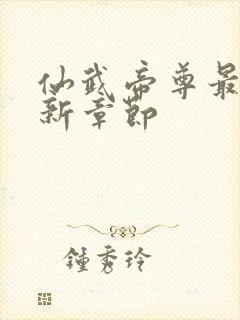 仙武帝尊最
新章節
鍾秀玲